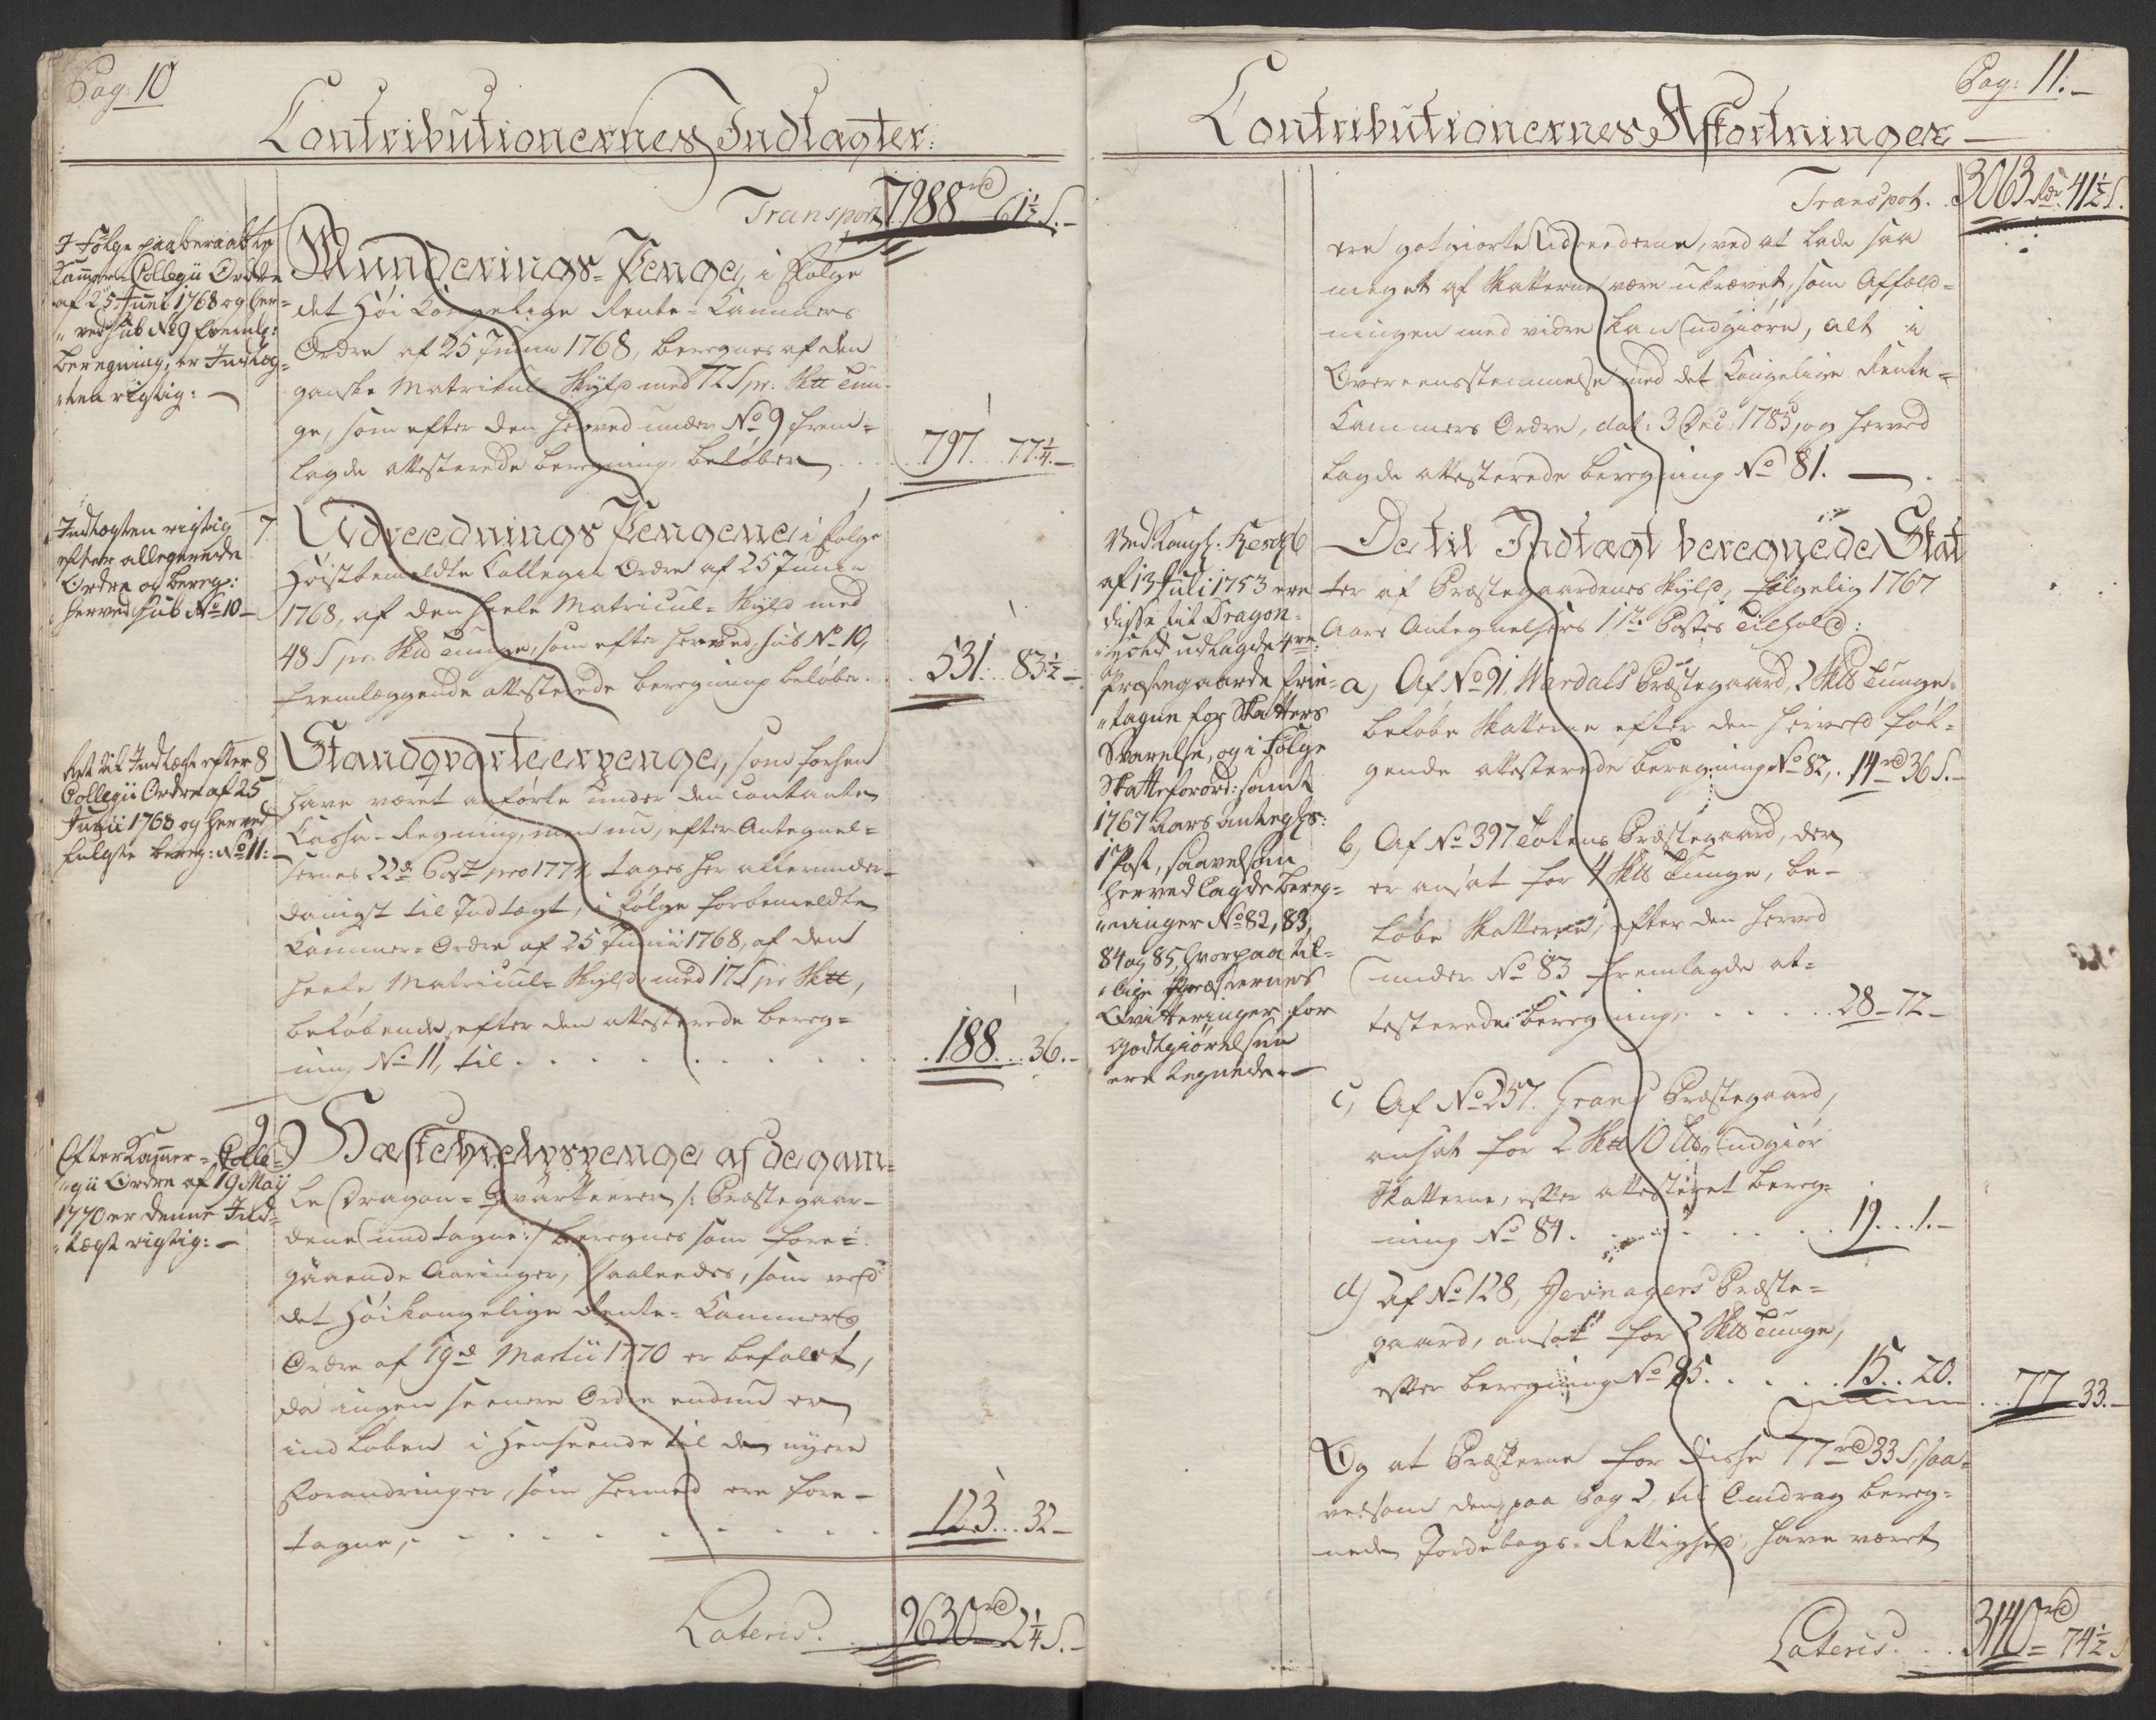 Pag: 10
Contributionernes Indtægter:
Transport 7988 rd 61 1/2 s.
I Følge paaberaabte
Kammer-Collegii Ordre
af 25 Junii 1768 og her-
ved sub No 9 fremlg:
Beregning, er Indtæg-
ten rigtig:
Munderings-Penge, i Følge
det Høi Kongelige Rente-Kammers
Ordre af 25 Junii 1768, beregnes af den
ganske Matricul-Skyld med 72 s pr. Skll Tun-
ge, som efter den herved under No 9 frem-
lagde attesterede beregning, beløber
797. 77 1/4.
Indtægten rigtig
efter allegerede
Ordre og bereg:
herved sub No 10
7.
Udreednings Pengene i Følge
Høistbemeldte Collegii Ordre af 25 Junii
1768, af den heele Matricul-Skyld med
48 s pr. Skld Tunge, som efter herved, sub No 10,
fremlæggende attesterede beregning beløber.
531. 83 1/2
Ført til Indtægt efter
Collegii Ordre af 25
Junii 1768 og herved
fulgte bereg: No 11:
8
Standqvarteerpenge, som forhen
have været anførte under den Contante
Cassa-Regning, men nu, efter Antegnel-
sernes 22de Post pro 1774, tages her allerunder-
danigst til Indtægt, i Følge forbemeldte
Kammer-Ordre af 25 Junii 1768, af den
heele Matricul-Skyld, med 17 s pr Skll,
beløbende, efter den attesterede bereg-
ning No 11, til
188. 36.
Efter Kammer-Colle-
gii Ordre af 19 Maij
1770 er denne Ind-
tægt rigtig:
9)
Hæstehielpspenge af de gam-
le Dragon-Qvarteerer /: Præstegaar-
dene undtagne :/ beregnes som fore-
gaaende Aaringer, saaledes, som ved
det Høikongelige Rente-Kammers
Ordre af 19d Martii 1770 er befalet,
da ingen seenere Ordre endnu er
indløben i Henseende til de nyere
Forandringer, som hermed ere fore-
tagne,
123. 32
Lateris. 9630 rd 2 1/4 s.
Pag: 11.
Contributionernes Afkortninger
Transport. 3063 rdr. 41 1/2 s.
ere godgiorte Udreederne, ved at lade saa
meget af Skatterne være ukrævet, som Affæld-
ningen med videre kan udgiøre, alt i
Overeensstemmelse med det Kongelige Rente-
Kammers Ordre, dat: 3 Dec: 1785, og herved
lagde attesterede beregning No 81.
Ved Kongl: Rescr
af 13 Juli 1753 ere
disse til Dragon-
hold udlagde 4re
Præstegaarde frie-
tagne for Skatters
Svarelse, og i Følge
Skatteforord: samt
1767 Aars Antegls:
1 Post, saavelsom
herved lagde bereg-
ninger No 82, 83,
84 og 85, hvorpaa til-
lige Præsternes
Qvitteringer for
Godtgiørelsen
ere tegnede.
De til Indtægt beregnede Skat
ter af Præstegaardenes Skyld, følgelig 1767
Aars Antegnelsers 1ste Postes Tilhold:
a) Af No 91, Wardals Præstegaard, 2 Skld Tunge,
beløbe Skatterne efter den herved føl-
gende attesterede beregning No 82, 14 rd 36 s.
b, Af No 397 Totens Præstegaard, der
er ansat for 4 Skld Tunge, be-
løbe Skatterne, efter den herved
under No 83 fremlagde at-
testerede beregning, 28-72
c, Af No 257. Grans Præstegaard,
ansat for 2 Skll 10 Lb, udgiør
Skatterne, efter attesteret bereg-
ning No 84. 19. 1.
d) Af No 128, Jevnagers Præste-
gaard, ansat for 2 Skld Tunge,
efter beregning No 85. 15. 20.
77 33.
Og at Præsterne for disse 77 rd 33 s, saa-
velsom den, paa Pag 2, til Omdrag bereg-
nede Jordebogs-Rettighed, have været
Lateris. 3140 rd 74 1/2 s